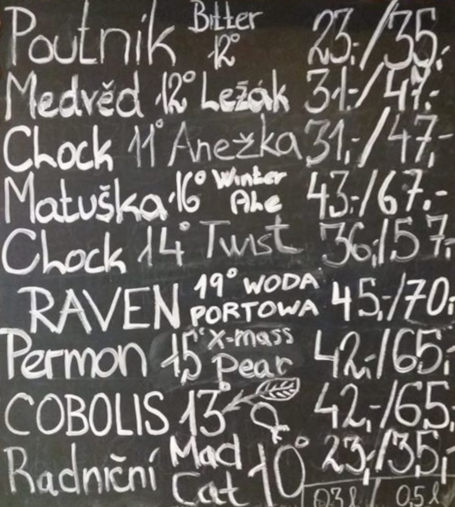 Poutník Bitter 12° 23,-/35,-
Medvěd 12° Ležák 31,-/47,-
Chock 11° Anežka 31,-/47,-
Matuška 16° Winter Ahe 43,-/67,-
Chock 14° Twist 36,-/57,-
RAVEN 19° WODA PORTOWA 45,-/70,-
Permon 15° X-mass Pear 42,-/65,-
COBOLIS 13° 42,-/65,-
Radniční Mad Cat 10° 23,-/35,-
0,3 l 0,5 l